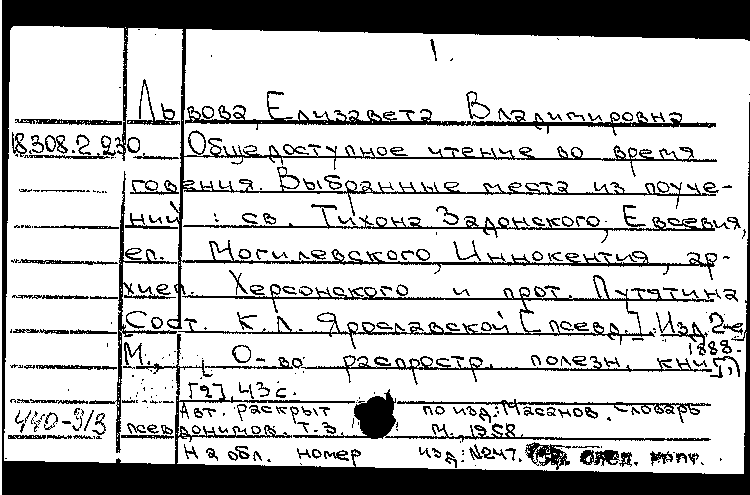 1.
Львова, Елизавета Владимировна
18.308.2.230 Общедоступное чтение во время
говения. Выбранные места из поуче-
ний : св. Тихона Задонского, Евсевия,
еп. Могилевского, Иннокентия, ар-
хиеп. Херсонского и прот. Путятина
Сост. К. Л. Ярославской [псевд.]. Изд. 2-е
М., О-во распростр. полезн. книг, 1888.
[2], 43 с.
440-913 Авт. раскрыт по изд: Масанов. Словарь
псевдонимов. Т.3. М., 1958.
На обл. номер изд: №247.